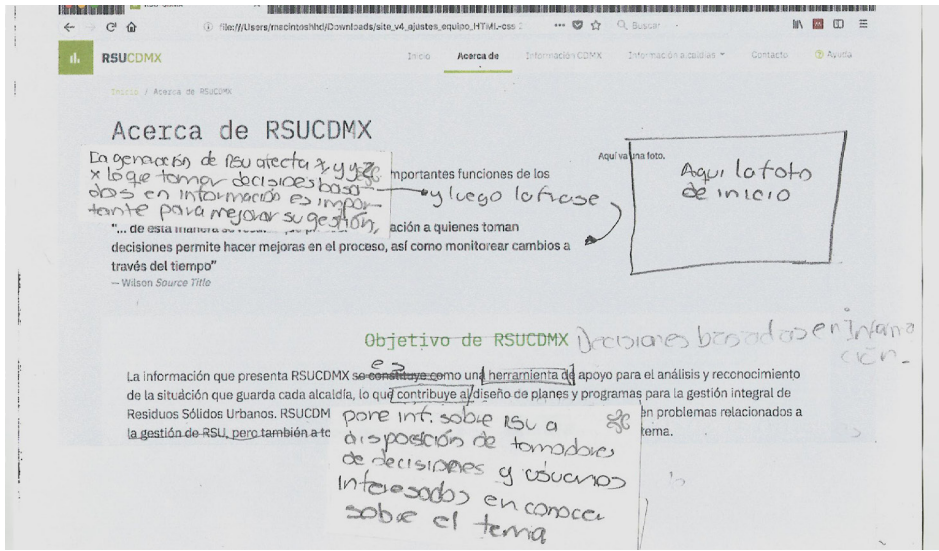 RSU CDMX
file:///Users/macintoshhd/Downloads/site_v4_ajustes_equipo_HTML-css 2
Buscar
RSUCDMX
Inicio
Acerca de
Información CDMX
Información alcaldías
Contacto
Ayuda
Inicio / Acerca de RSUCDMX
Acerca de RSUCDMX
La generación de RSU afecta x, y y z
x lo que tomar decisiones basa-
dos en información es impor-
tante para mejorar su gestión,
mportantes funciones de los
y luego la frase
Aquí va una foto.
Aquí la foto
de inicio
"... de esta manera
ación a quienes toman
decisiones permite hacer mejoras en el proceso, así como monitorear cambios a
través del tiempo"
— Wilson Source Title
Objetivo de RSUCDMX
Decisiones basadas en Informa
ción.
es
La información que presenta RSUCDMX se constituye como una herramienta de apoyo para el análisis y reconocimiento
de la situación que guarda cada alcaldía, lo que contribuye al diseño de planes y programas para la gestión integral de
Residuos Sólidos Urbanos. RSUCDM
en problemas relacionados a
la gestión de RSU, pero también a to
tema.
pone inf. sobre RSU a
disposición de tomadores
de decisiones y usuarios
interesados en conocer
sobre el tema